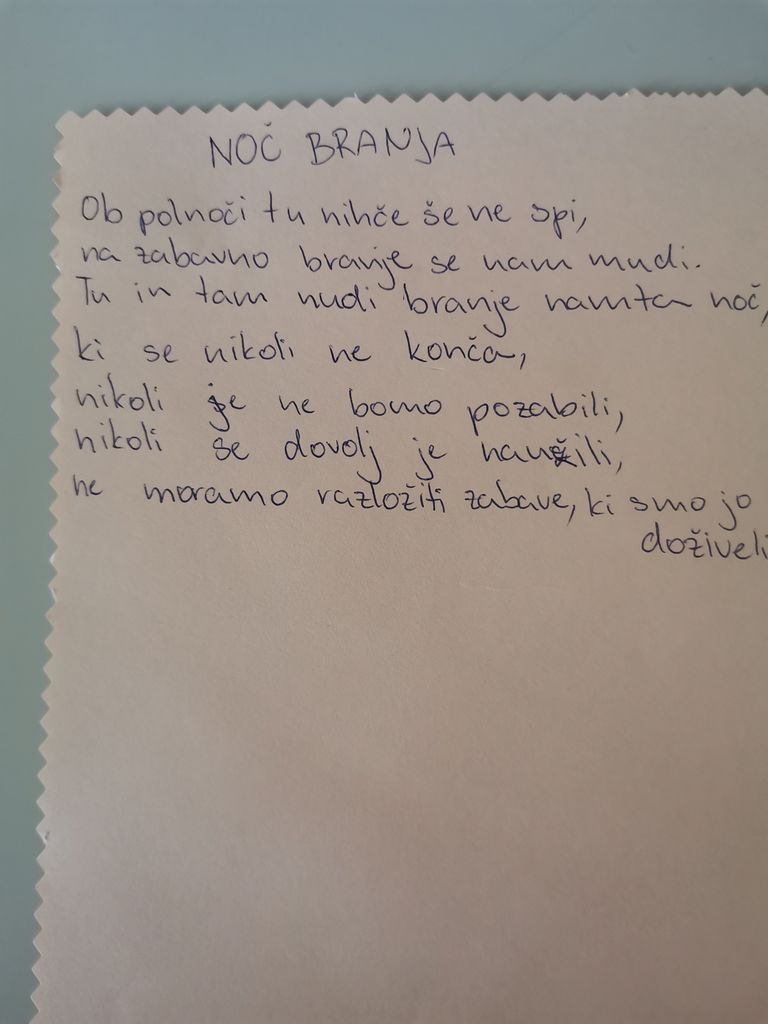 NOČ BRANJA
Ob polnoči tu nihče še ne spi,
na zabavno branje se nam mudi.
Tu in tam nudi branje nam ta noč,
ki se nikoli ne konča,
nikoli je ne bomo pozabili,
nikoli se dovolj je naužili,
ne moramo razložiti zabave, ki smo jo
doživeli